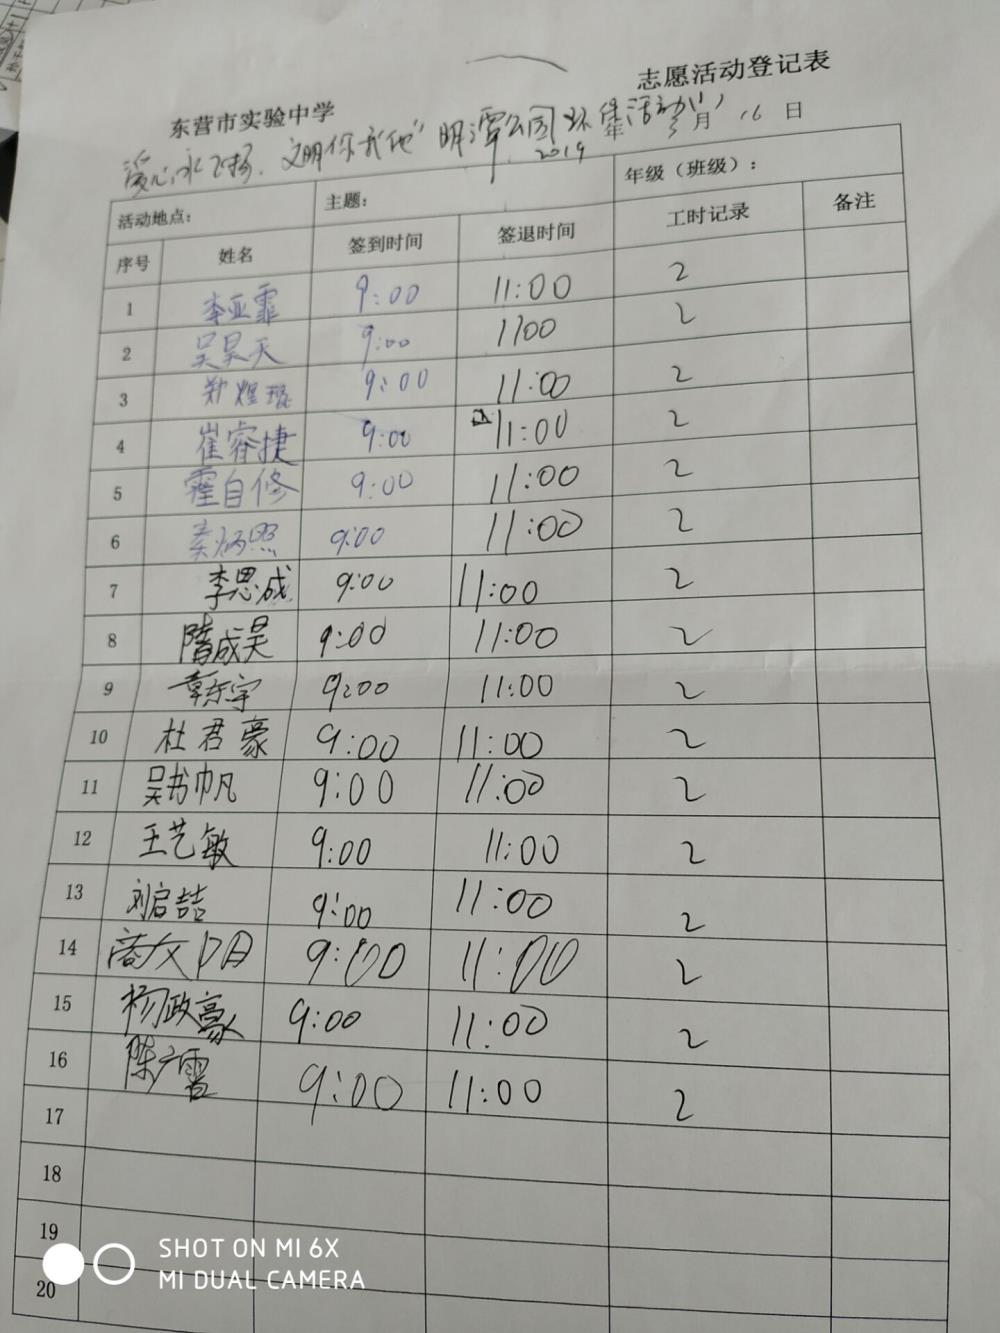 东营市实验中学 志愿活动登记表
爱心永飞扬.文明你我他"明潭公园环保活动"
2019年 3月 16日
活动地点: 主题: 年级（班级）:
序号 姓名 签到时间 签退时间 工时记录 备注
1 李亚霏 9:00 11:00 2
2 吴昊天 9:00 1100 2
3 郑煜琨 9:00 11:00 2
4 崔睿捷 9:00 11:00 2
5 霍自修 9:00 11:00 2
6 秦炳照 9:00 11:00 2
7 李思成 9:00 11:00 2
8 隋成昊 9:00 11:00 2
9 章东宇 9:00 11:00 2
10 杜君豪 9:00 11:00 2
11 吴书帆 9:00 11:00 2
12 王艺敏 9:00 11:00 2
13 刘启喆 9:00 11:00 2
14 9:00 11:00 2
15 杨政豪 9:00 11:00 2
16 陈广雪 9:00 11:00 2
17
18
19
20
SHOT ON MI 6X
MI DUAL CAMERA